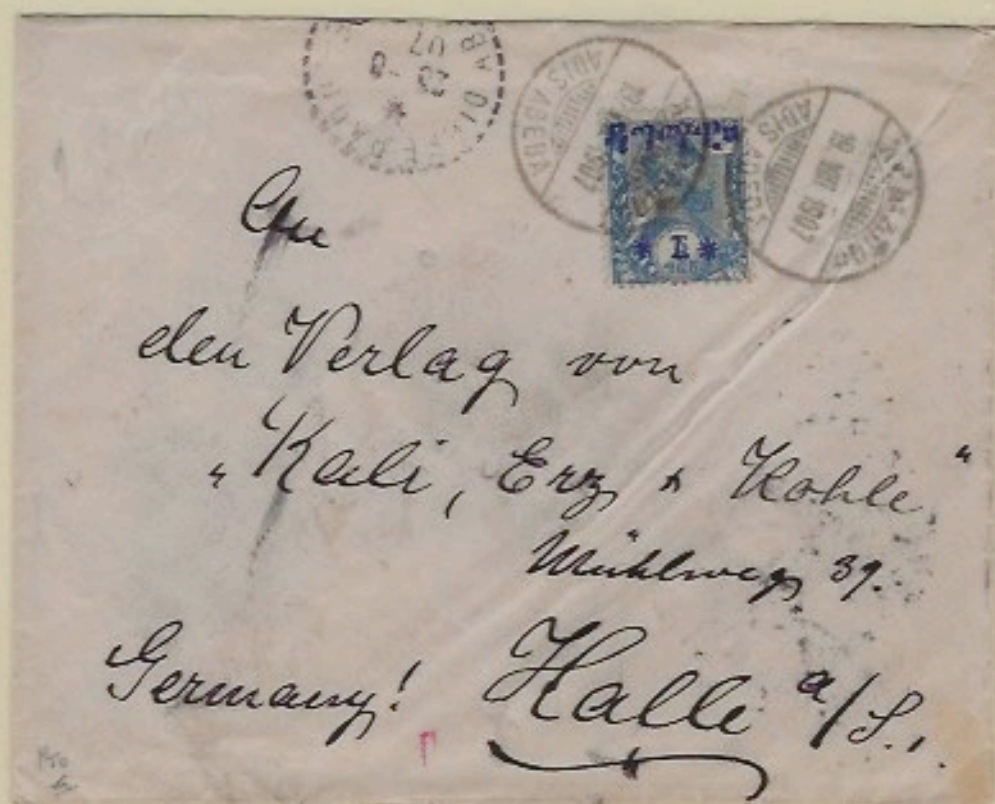 ADIS ABEBA
1907
ADIS ABEBA
19 VIII 1907
1
An
den Verlag von
„Kali, Erz & Kohle“
Mühlweg 39.
Germany! Halle a/S.,